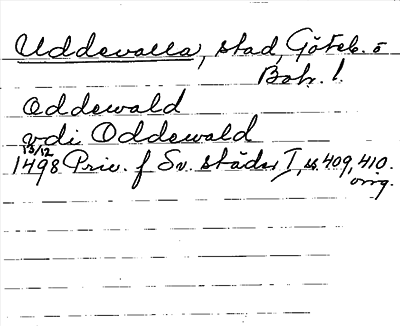 Uddevalla, stad, Göteb. o
Boh. l.
Oddewald
vdi Oddewald
13/12
1498 Priv. f Sv. städer I, s. 409, 410.
orig.